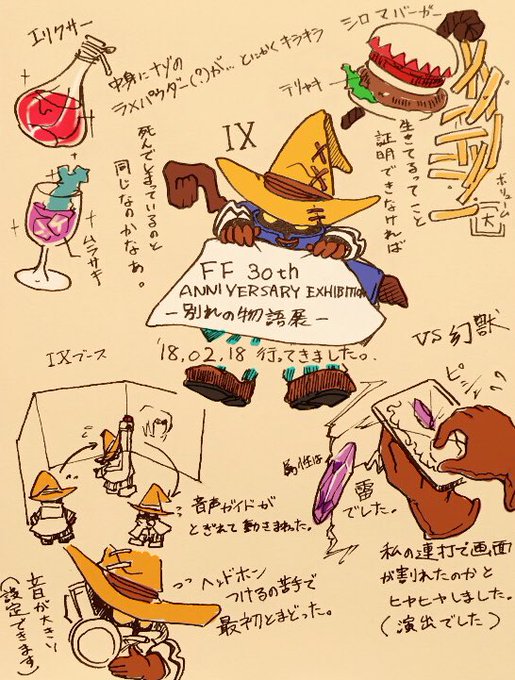 エリクサー
中身にナゾの
ラメパウダー(?)が… とにかくキラキラ
シロマバーガー
テリヤキ
ボリューム
大
生きてるってこと
証明できなければ
死んでしまっているのと
同じなのかなぁ。
ムラサキ
IX
FF 30th
ANNIVERSARY EXHIBITION
-別れの物語展-
'18.02.18 行ってきました。
IXブース
音声ガイドが
とぎれて動きまわった。
ヘッドホン
つけるの苦手で
最初とまどった。
音が大きい
(設定できます)
VS幻獣
ピシッ
属性は
雷
でした。
私の連打で画面
が割れたのかと
ヒヤヒヤしました。
(演出でした)